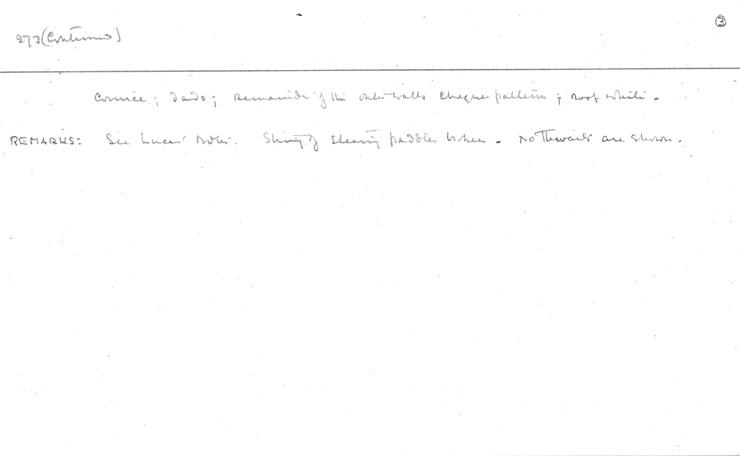 ②
273 (Continued)
cornice; dado; remainder of the outer walls chequer pattern; roof white.
REMARKS: See Lucas' Notes. String of steering paddles broken. No Thwarts are shown.